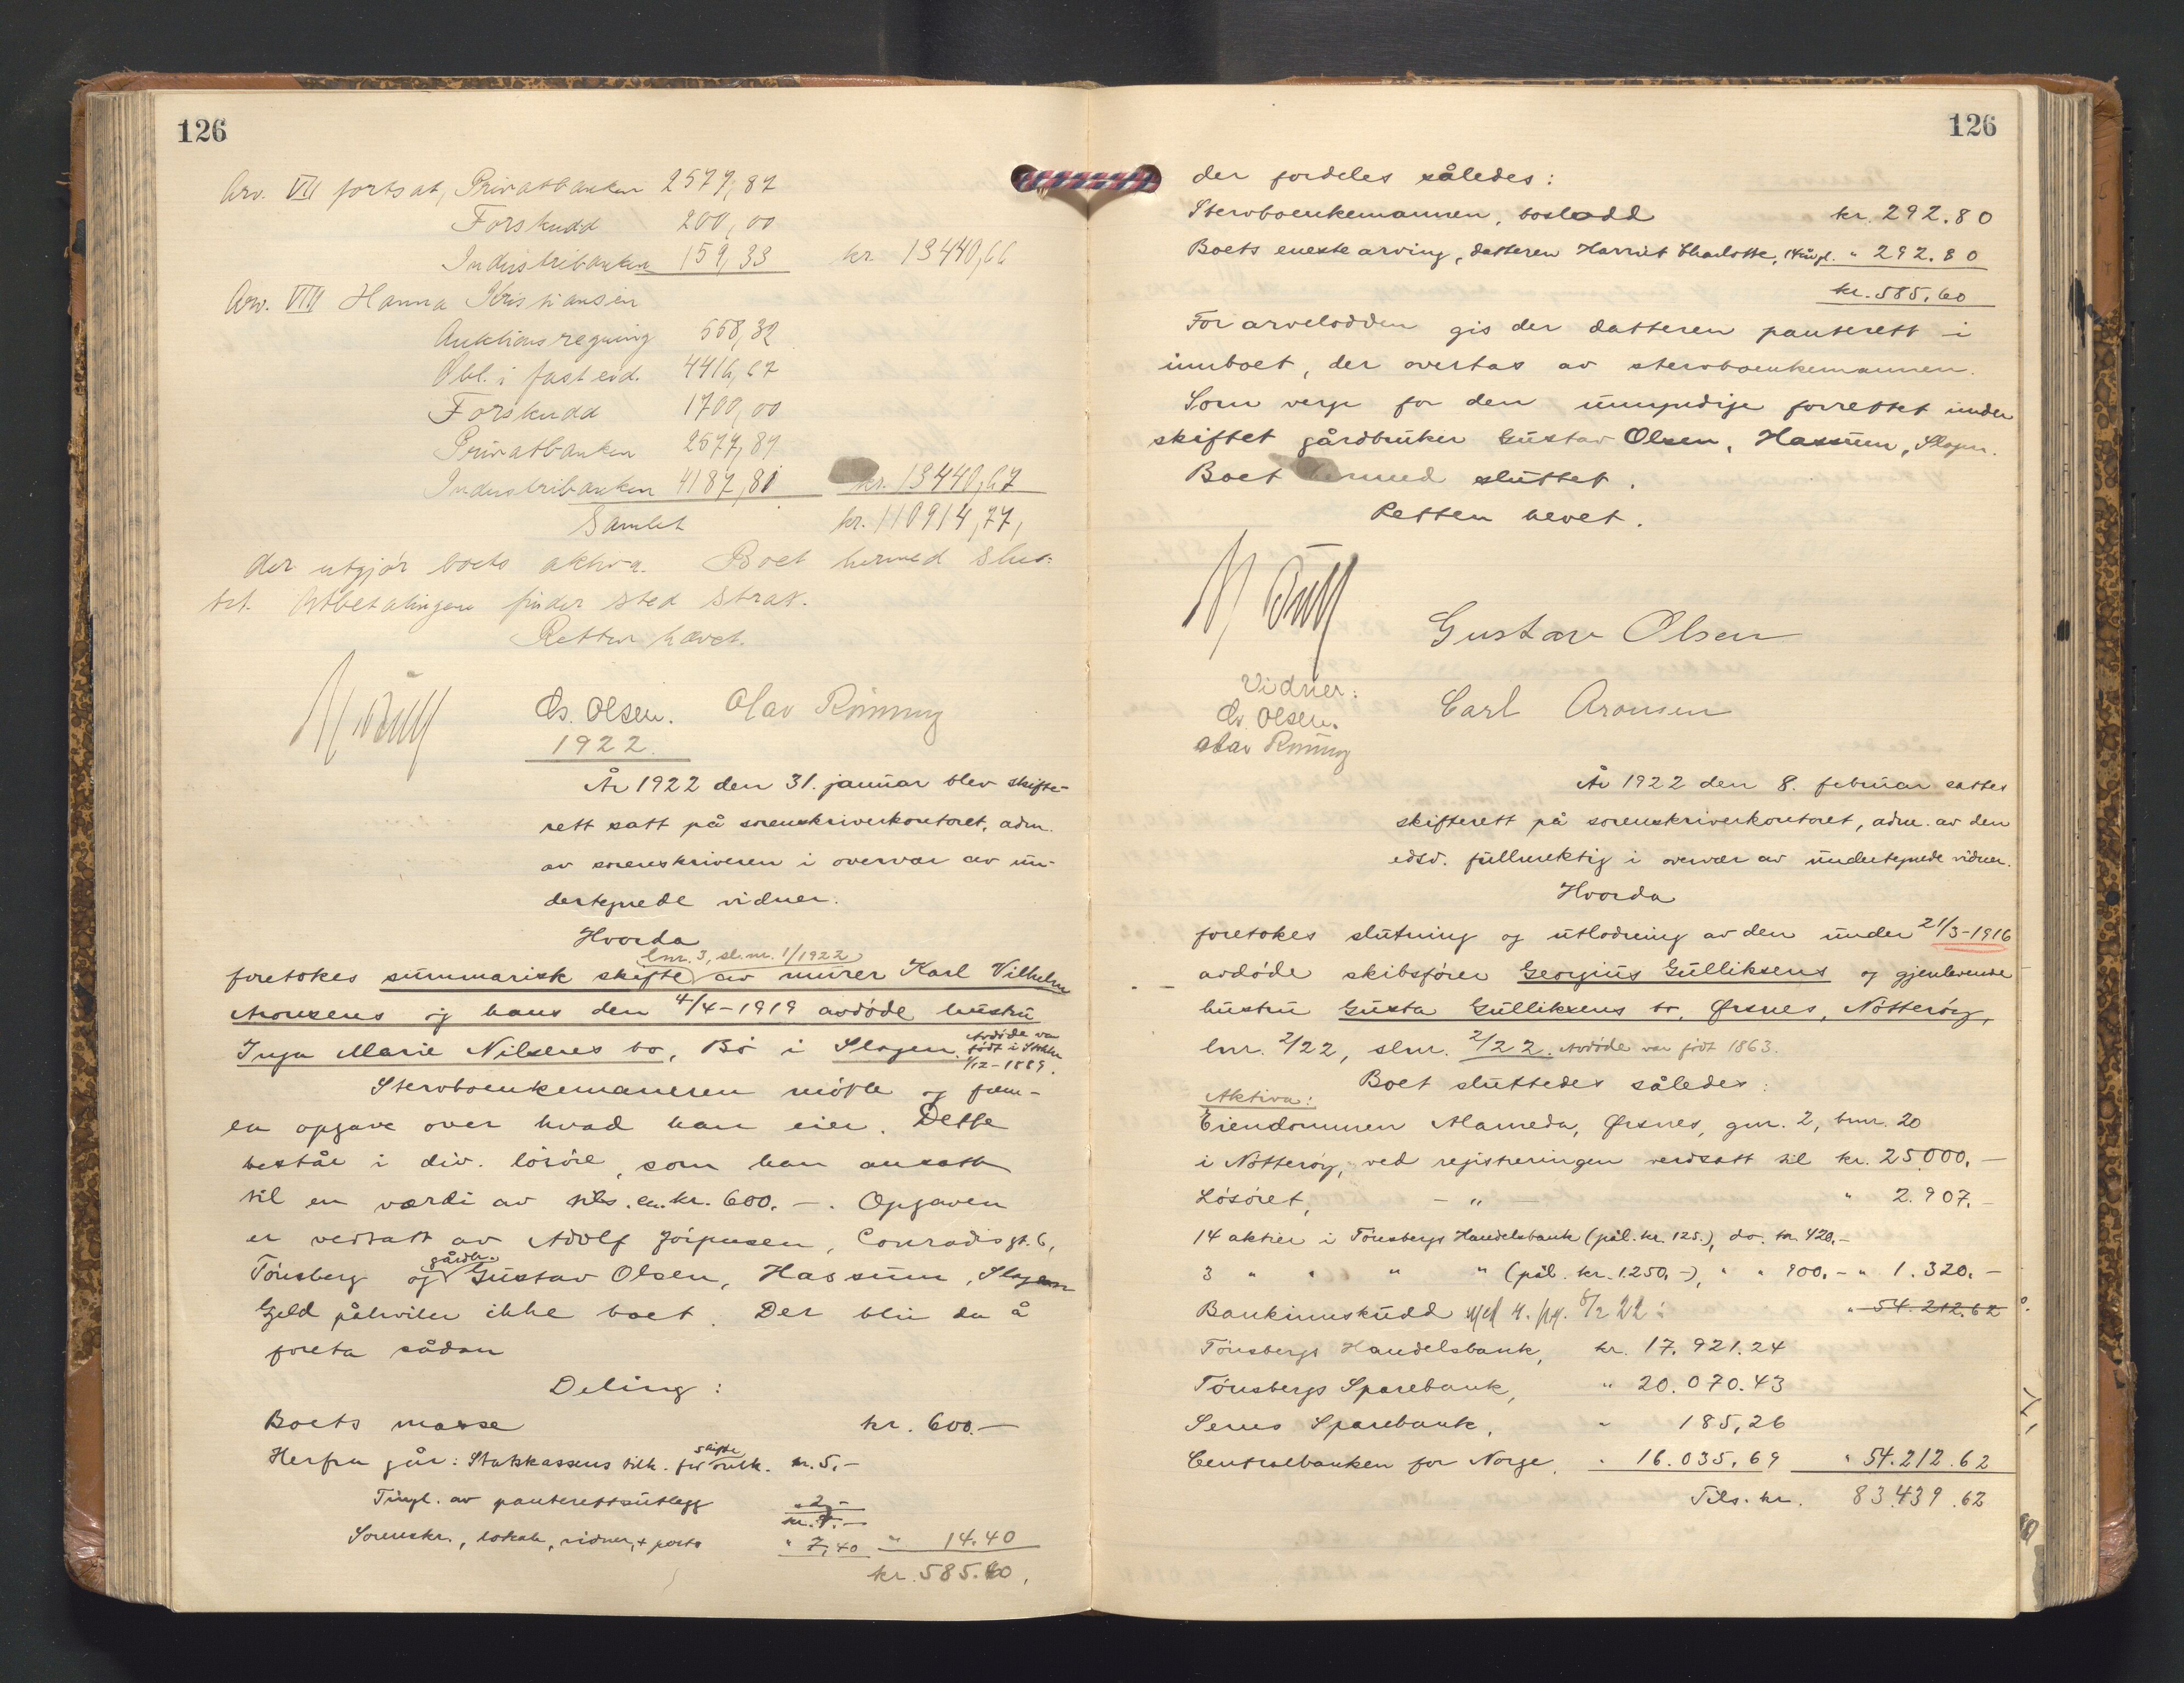 126
Arv. VII fortsat, Privatbanken 2579,87
Forskudd 200,00
Industribanken 159,33 kr. 13440,66
Arv. VIII Hanna Kristiansen
Auktionsregning 558,32
Obl. i fast eid. 4416,67
Forskudd 1700,00
Privatbanken 2577,87
Industribanken 4187,81 kr. 13440,67
Samlet kr. 110914,77,
der utgjør boets aktiva. Boet hermed slut-
tet. Utbetalingen finder sted strax.
Retten hævet.
Cs. Olsen. Olav Rönning
1922.
År 1922 den 31. januar blev skifte-
rett satt på sorenskriverkontoret, adm.
av sorenskriveren i overvær av un-
dertegnede vidner.
Hvorda
lnr. 3, sl.nr. 1/1922
foretokes summarisk skifte av murer Karl Vilhelm
Aronsens og hans den 4/4-1919 avdöde hustru
Inga Marie Nilsens bo, Bö i Slagen. Avdöde var
født i Stokke
1/12-1889.
Stervboenkemannen mötte og frem-
la opgave over hvad han eier. Dette
består i div. lösöre, som han ansatte
til en værdi av tils. ca. kr. 600.-. Opgaven
er vedtatt av Adolf Jörgensen, Conradisgt. 6,
Tönsberg og gårdbr. Gustav Olsen, Hassum, Slagen
Gjeld påhviler ikke boet. Der blir da å
foreta sådan
Deling:
Boets masse kr. 600.-
Herfra går: Statskassens tilk. for skifte behk. kr. 5.-
Tingl. av panterettsutlegg " 2.-
kr. 7.-
Sorenskr., lokale, vidner, + porto " 7,40 " 14.40
kr. 585.60,
126
der fordeles således:
Stervboenkemannen, boslodd kr. 292.80
Boets eneste arving, datteren Harriet Charlotte, 14 år gl. " 292.80
kr. 585,60
For arvelodden gis der datteren panterett i
innboet, der overtas av stervboenkemannen.
Som verge for den umyndige forrettet under
skiftet gårdbruker Gustav Olsen, Hassum, Slagen.
Boet hermed sluttet.
Retten hevet.
Gustav Olsen
Vidner:
Cs. Olsen. Carl Aronsen
Olav Rönning
År 1922 den 8. februar sattes
skifterett på sorenskriverkontoret, adm. av den
edsv. fullmektig i overvær av undertegnede vidner.
Hvorda
foretokes slutning og utlodning av den under 21/3-1916
avdöde skibsförer Georgius Gulliksens og gjenlevende
hustru Gusta Gulliksens bo, Örsnes, Nötteröy,
lnr. 2/22, slnr. 2/22. Avdöde var født 1863.
Boet sluttedes således:
Aktiva:
Eiendommen Alameda, Örsnes, gnr. 2, bnr. 20
i Nötteröy, ved registreringen verdsatt til kr. 25.000.-
Lösöret, - " - " 2.907.-
14 aktier i Tönsbergs Handelsbank (pål. kr. 125.), do. kr. 420.-
3 " " " " (pål. kr. 1.250.-), " " 900.- " 1.320.-
Bankinnskudd 8/2 22: " 54.212.62
Tönsbergs Handelsbank, kr. 17.921.24
Tönsbergs Sparebank, " 20.070.43
Sems Sparebank, " 185,26
Centralbanken for Norge, " 16.035,69 " 54.212.62
Tils. kr. 83.439.62